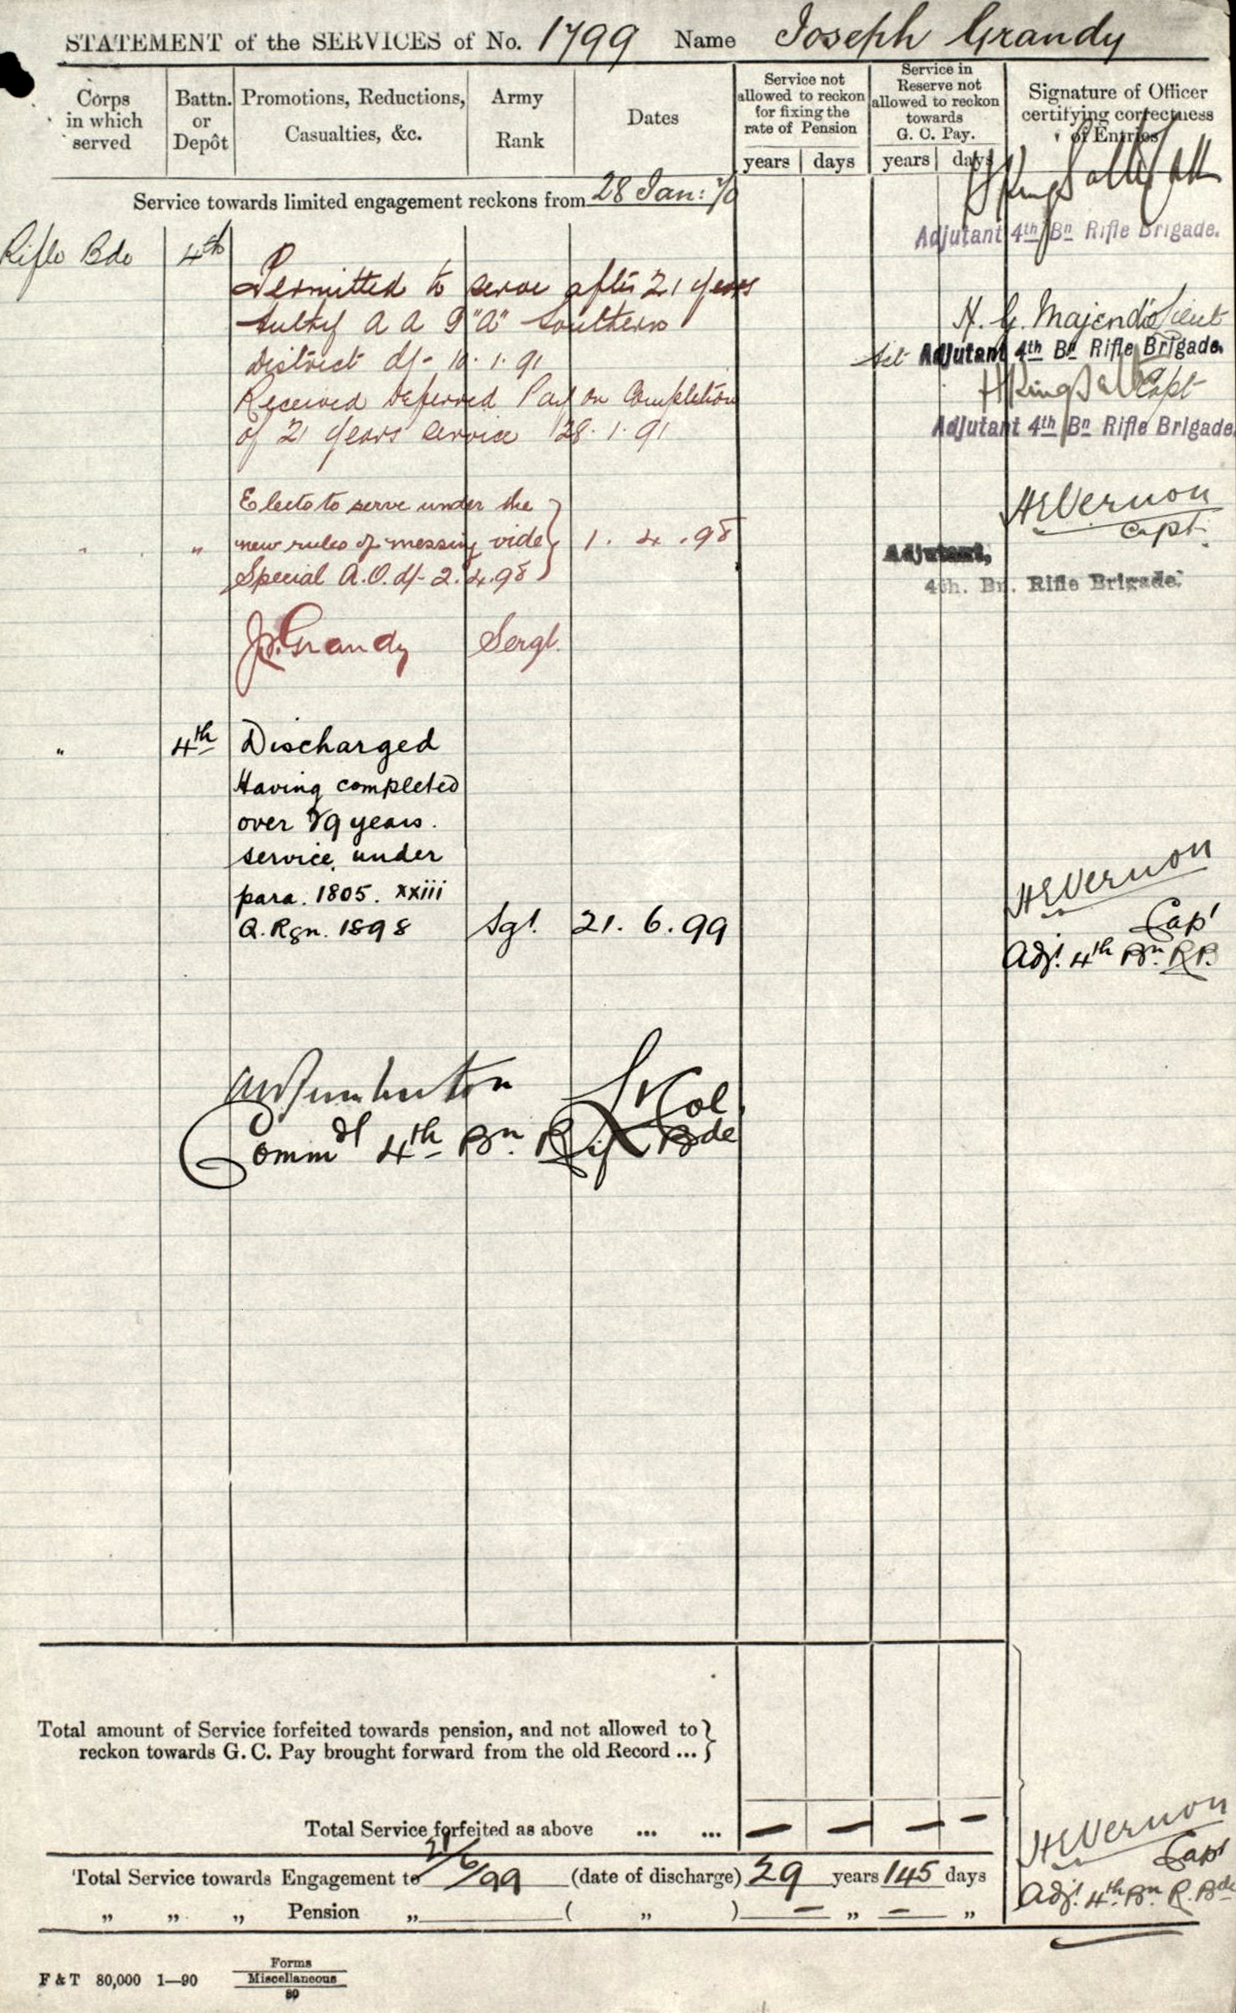 STATEMENT of the SERVICES of No. 1799 Name Joseph Grandy
Corps in which served
Battn. or Depôt
Promotions, Reductions, Casualties, &c.
Army Rank
Dates
Service not allowed to reckon for fixing the rate of Pension
years days
Service in Reserve not allowed to reckon towards G. C. Pay.
years days
Signature of Officer certifying correctness of Entries
Service towards limited engagement reckons from 28 Jan: 70
Adjutant 4th Bn Rifle Brigade.
Rifle Bde 4th
Permitted to serve after 21 years
authy A A G "A" Southern
District d/- 10.1.91
H. G. Majendie Lieut
Act Adjutant 4th Bn Rifle Brigade.
Received Deferred Pay on Completion
of 21 years service 28.1.91
Capt
Adjutant 4th Bn Rifle Brigade.
Elects to serve under the
" " new rules of messing vide } 1. 4. 98
Special A.O. d/- 2.4.98
HEVernon
Capt.
Adjutant,
4th. Bn. Rifle Brigade.
Jos. Grandy Sergt.
" 4th Discharged
Having completed
over 29 years.
service under
para. 1805. xxiii
Q. Rgn. 1898 Sgt. 21. 6. 99
HEVernon
Capt
Adjt. 4th Bn. R.B.
Lt Col.
Commdg 4th Bn. Rif Bde
Total amount of Service forfeited towards pension, and not allowed to }
reckon towards G. C. Pay brought forward from the old Record ... }
Total Service forfeited as above ... ... — — — —
Total Service towards Engagement to 21/6/99 (date of discharge) 29 years 145 days
" " " Pension " ( " ) — " — "
HEVernon
Capt
Adjt. 4th Bn R. Bde
F & T 80,000 1—90
Forms
Miscellaneous
80